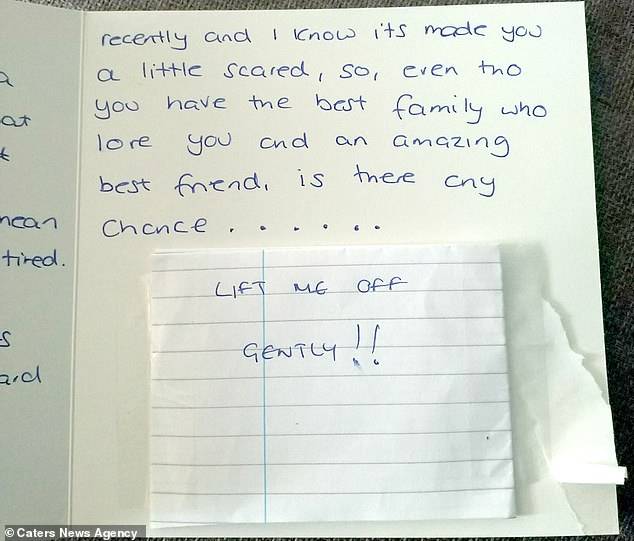 a
at
t
mean
tired.
s
ard
recently and I know its made you
a little scared, so, even tho
you have the best family who
love you and an amazing
best friend, is there any
Chance . . . . . .
LIFT ME OFF
GENTLY !!
©Caters News Agency